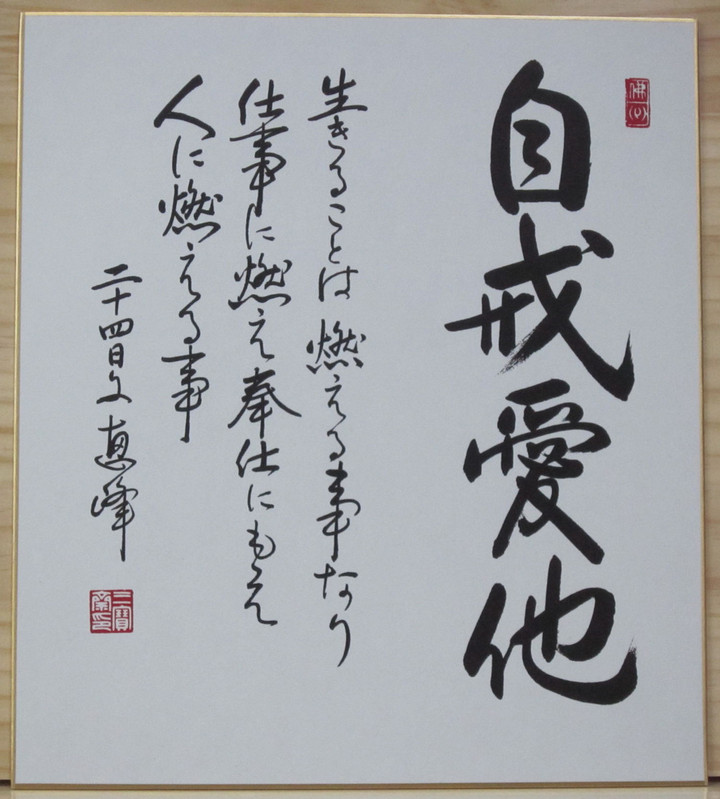 佛心
自戒愛他
生きることは燃える事なり
仕事に燃え奉仕にもえ
人に燃える事
二十四日文 恵峰
三寶齋印